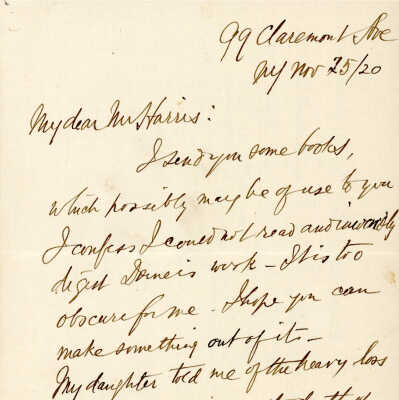 99 Claremont Ave
NY Nov 25/20
My dear Mr Harris:
I send you some books,
which possibly may be of use to you
I confess I could not read and inwardly
digest work - It is too
obscure for me - I hope you can
make something out of it -
My daughter told me of the heavy loss